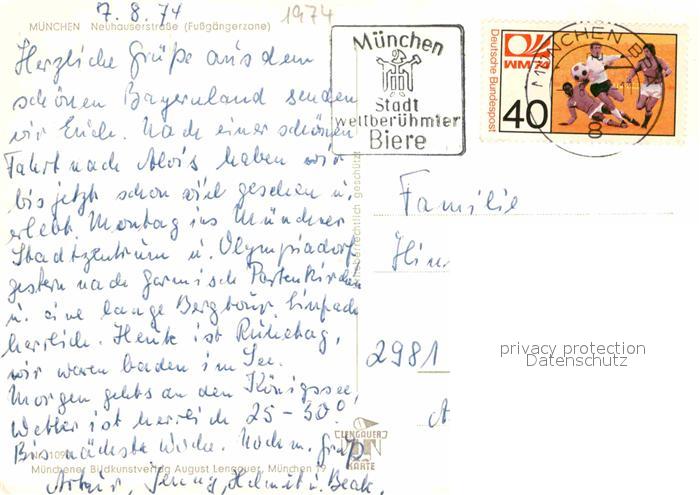 7.8.74
1974
MÜNCHEN Neuhauserstraße (Fußgängerzone)
Herzliche Grüße aus dem
schönen Bayernland senden
wir Euch. Nach einer schönen
Fahrt nach Alois haben wir
bis jetzt schon viel gesehen u.
erlebt. Montag ins Münchner
Stadtzentrum u. Olympiadorf
gestern nach Garmisch Partenkirchen
u. eine lange Bergtour. Einfach
herrlich. Heute ist Ruhetag,
wir waren baden im See.
Morgen gehts an den Königssee,
Wetter ist herrlich 25-30°.
Bis nächste Woche. Nochm. Gruß
Artur, Jenny, Helmut u. Beate.
Münchener Bildkunstverlag August Lengauer, München 19
LENGAUER
KARTE
Urheberrechtlich geschützt
München
Stadt
weltberühmter
Biere
Deutsche Bundespost
WM 74
40
MÜNCHEN
Familie
2981
privacy protection
Datenschutz